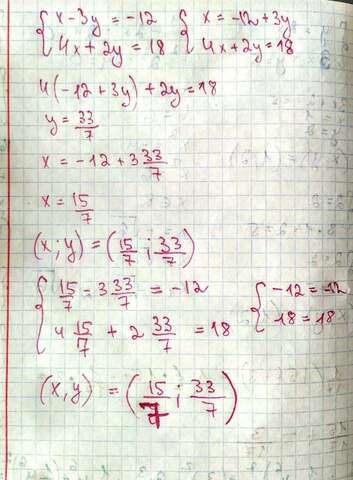 {x - 3y = -12 {x = -12 + 3y
{4x + 2y = 18 {4x + 2y = 18
4(-12 + 3y) + 2y = 18
y = 33/7
x = -12 + 3 33/7
x = 15/7
(x; y) = (15/7; 33/7)
{15/7 - 3 33/7 = -12 {-12 = -12
{4 15/7 + 2 33/7 = 18 {18 = 18
(x, y) = (15/7; 33/7)